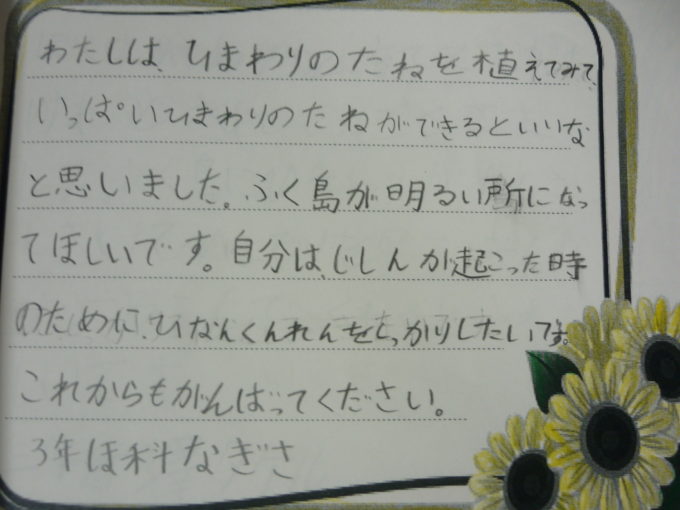 わたしは、ひまわりのたねを植えてみて、
いっぱいひまわりのたねができるといいな
と思いました。ふく島が明るい所になっ
てほしいです。自分は、じしんが起こった時
のために、ひなんくんれんをしっかりしたいです。
これからもがんばってください。
3年ほ科なぎさ